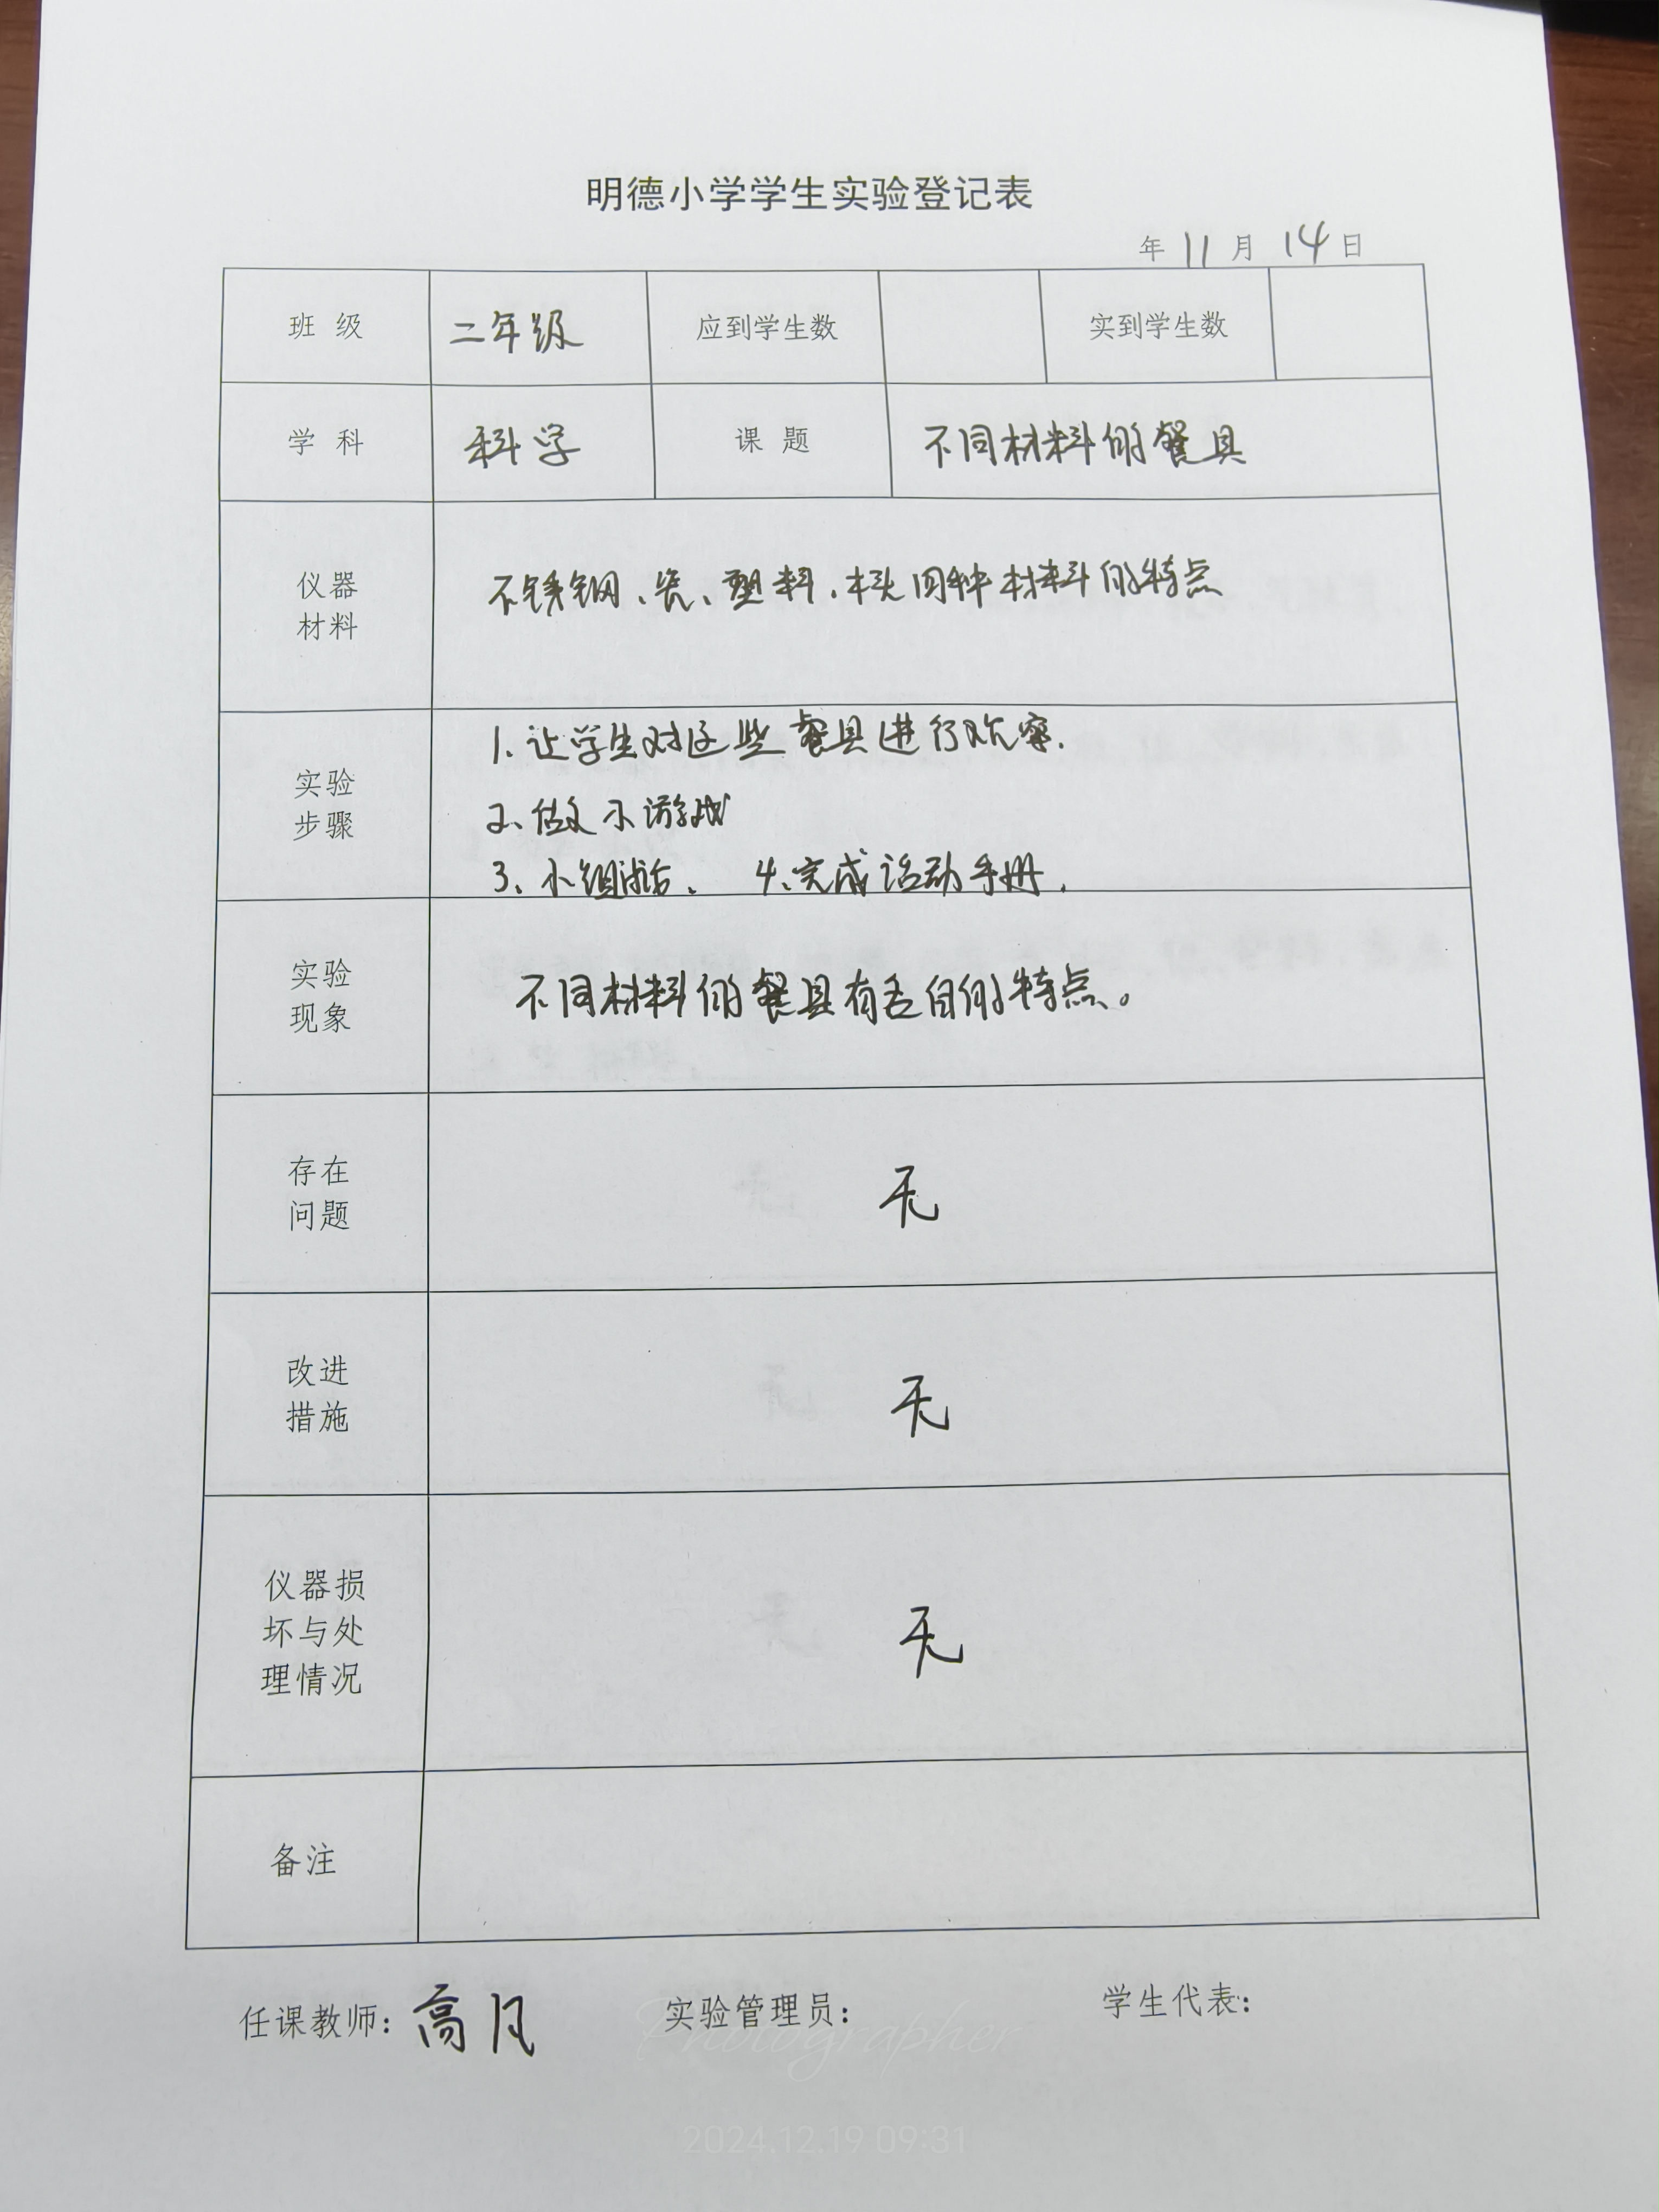 明德小学学生实验登记表
年 11 月 14 日
班 级 二年级 应到学生数 实到学生数
学 科 科学 课 题 不同材料的餐具
仪器
材料
不锈钢、瓷、塑料、木头四种材料的特点
实验
步骤
1、让学生对这些餐具进行观察.
2、做小游戏
3、小组讨论、 4、完成活动手册.
实验
现象
不同材料的餐具有各自的特点。
存在
问题
无
改进
措施
无
仪器损
坏与处
理情况
无
备注
任课教师: 高月 实验管理员: 学生代表:
Photographer
2024.12.19 09:31